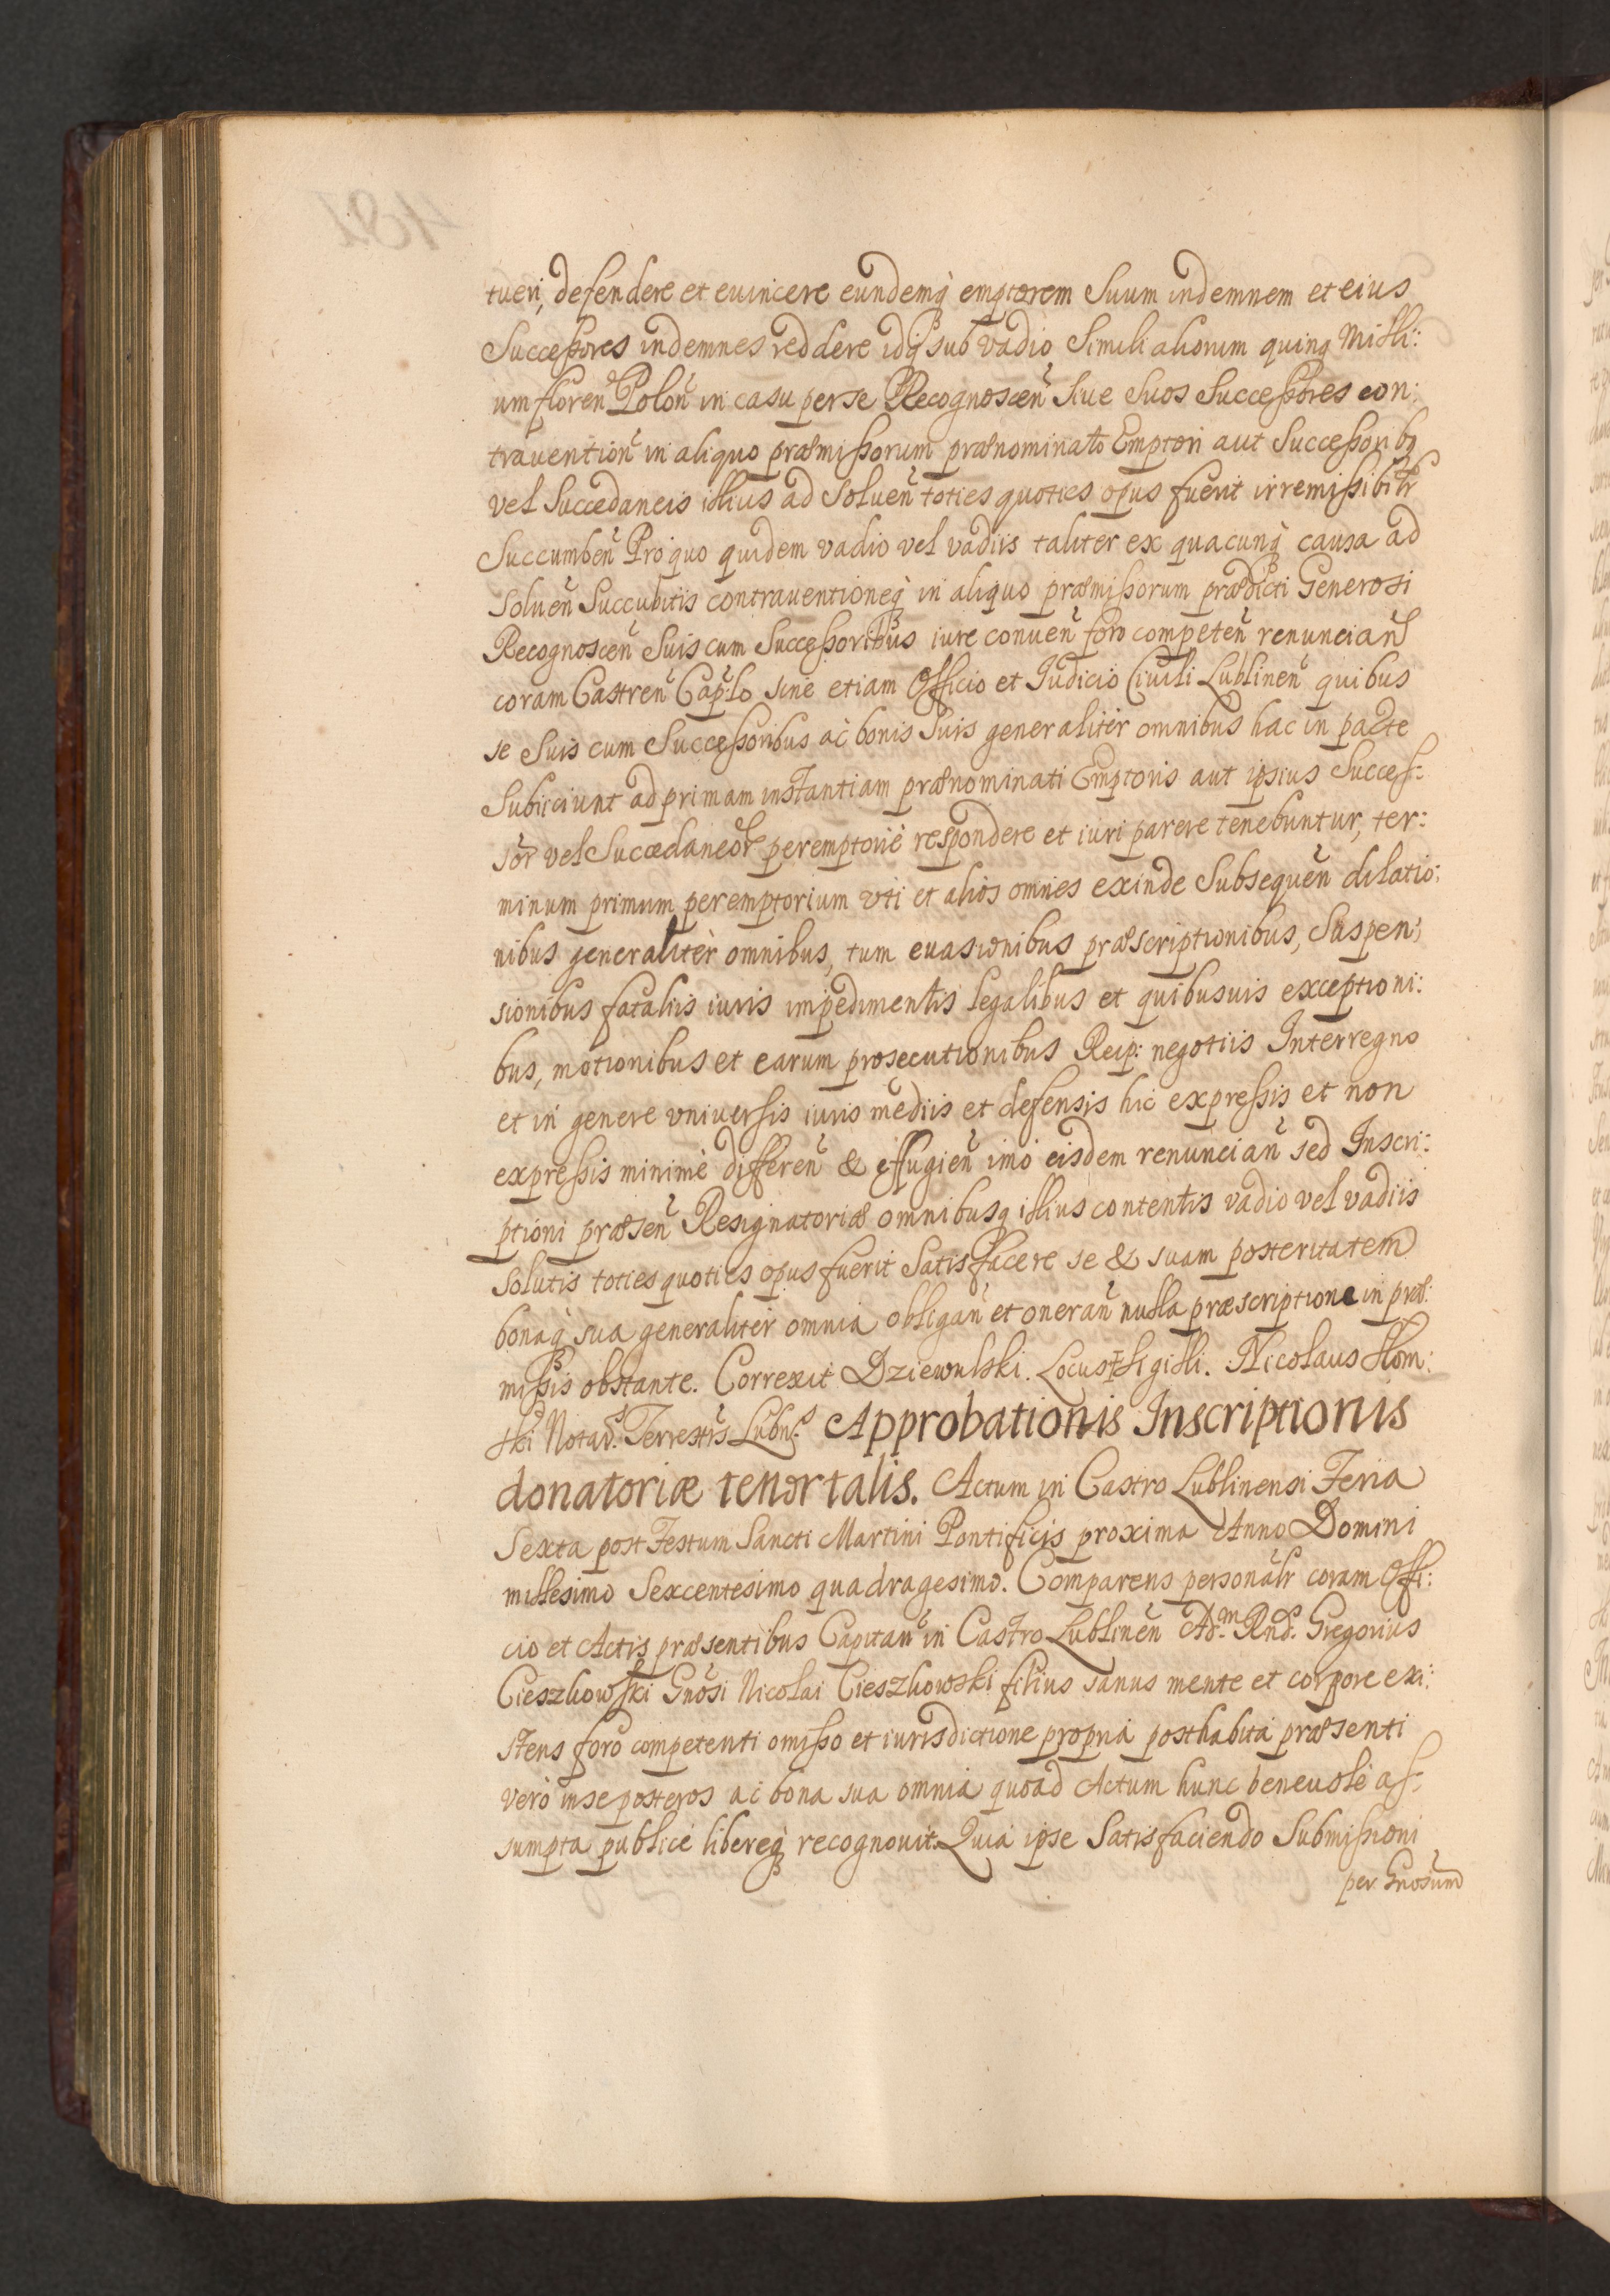 tueri, defendere et euincere eundemq́ emptorem Suum indemnem et eius
Successores indemnes reddere idq́ sub vadio Simili aliorum quinq Milli:
um floreñ Poloñ in casu per se Recognosceñ Siue Suos Successores con:
trauentioñ in aliquo præmissorum prænominato Emptori aut Successorib9
vel Succedaneis illius ad Solueñ toties quoties opus fuerit irremissibiłr
Succumbeñ Pro quo quidem vadio vel vadiis taliter ex quacunq́ causa ad
Solueñ Succubitis contrauentioneq́ in aliquo præmissorum prædicti Generosi
Recognosceñ Suis cum Successoribus iure conueñ foro competeñ renunciañ
coram Castreñ Cap:lo siue etiam Officio et Iudicio Ciuili Lublineñ quibus
se Suis cum Successoribus ac bonis Suis generalitèr omnibus hac in parte
Subiiciunt ad primam instantiam prænominati Emptoris aut ipsius Succes:
sor̃ vel Succedaneor̃ peremptoriè respondere et iuri parere tenebuntur, ter:
minum primum peremptorium vti et alios omnes exinde Subsequeñ dilatio:
nibus generalitèr omnibus, tum euasionibus præscriptionibus, Suspen:
sionibus fataliis iuris impedimentis legalibus et quibusuis exceptioni:
bus, motionibus et earum prosecutionibus Reip: negotiis Interregno
et in genere vniuersis iuris mediis et defensis hic expressis et non
expressis minimè differeñ & effugieñ imo eisdem renunciañ sed Inscri:
ptioni præseñ Resignatoriæ omnibusq illius contentis vadio vel vadiis
solutis toties quoties opus fuerit Satisfacere se & suam posteritatem
bonaq́ sua generalitèr omnia obligañ et onerañ nulla præscriptione in præ:
missis obstante. Correxit Dziewulski. Locus ‡ Sigilli. Nicolaus Słom:
ski Notař. Terrestris Lubns. Approbationis Inscriptionis
donatoriæ tenor talis. Actum in Castro Lublinensi Feria
Sexta post Festum Sancti Martini Pontificis proxima Anno Domini
millesimo Sexcentesimo quadragesimo. Comparens personałr coram Offi:
cio et Actis præsentibus Capitañ in Castro Lublineñ Adm. Rnd. Gregorius
Cieszkowski Gnõsi Nicolai Cieszkowski filius sanus mente et corpore exi:
stens foro competenti omisso et iurisdictione propria posthabita præsenti
verò in se posteros ac bona sua omnia quoad Actum hunc beneuolè as:
sumpta publicè libereq́ recognouit. Quia ipse Satisfaciendo Submissioni
per Gnõsum